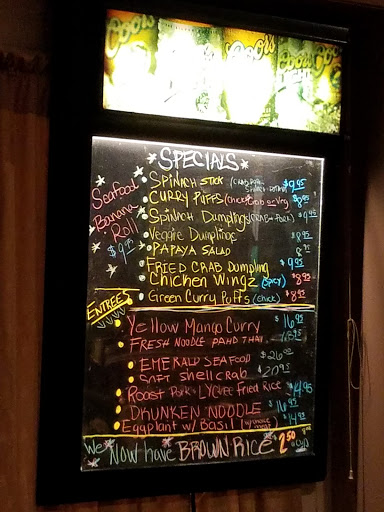 Coors Coors Coors Coors
*SPECIALS*
Seafood
Banana
Roll
$9.95
SPINACH STICK (CRAB, PORK, SPINACH $9.95
CURRY PUFFS (chick/Crab or Veg) $8.95
Spinach Dumplings (CRAB + PORK) $9.95
Veggie Dumplings $8.95
PAPAYA SALAD 8.95
FRIED CRAB Dumpling $9.95
Chicken Wingz (SPICY) $8.95
Green Curry Puffs (chick) $8.95
ENTREES
Yellow Mango Curry $16.95
FRESH NOODLE PAHD THAI
EMERALD SEAFOOD $26.00
SOFT Shell crab $20.95
Roast Pork & LYCHEE Fried Rice $14.95
DRUNKEN NOODLE $16.95
Eggplant w/ Basil $14.95
We Now have BROWN RICE $2.50